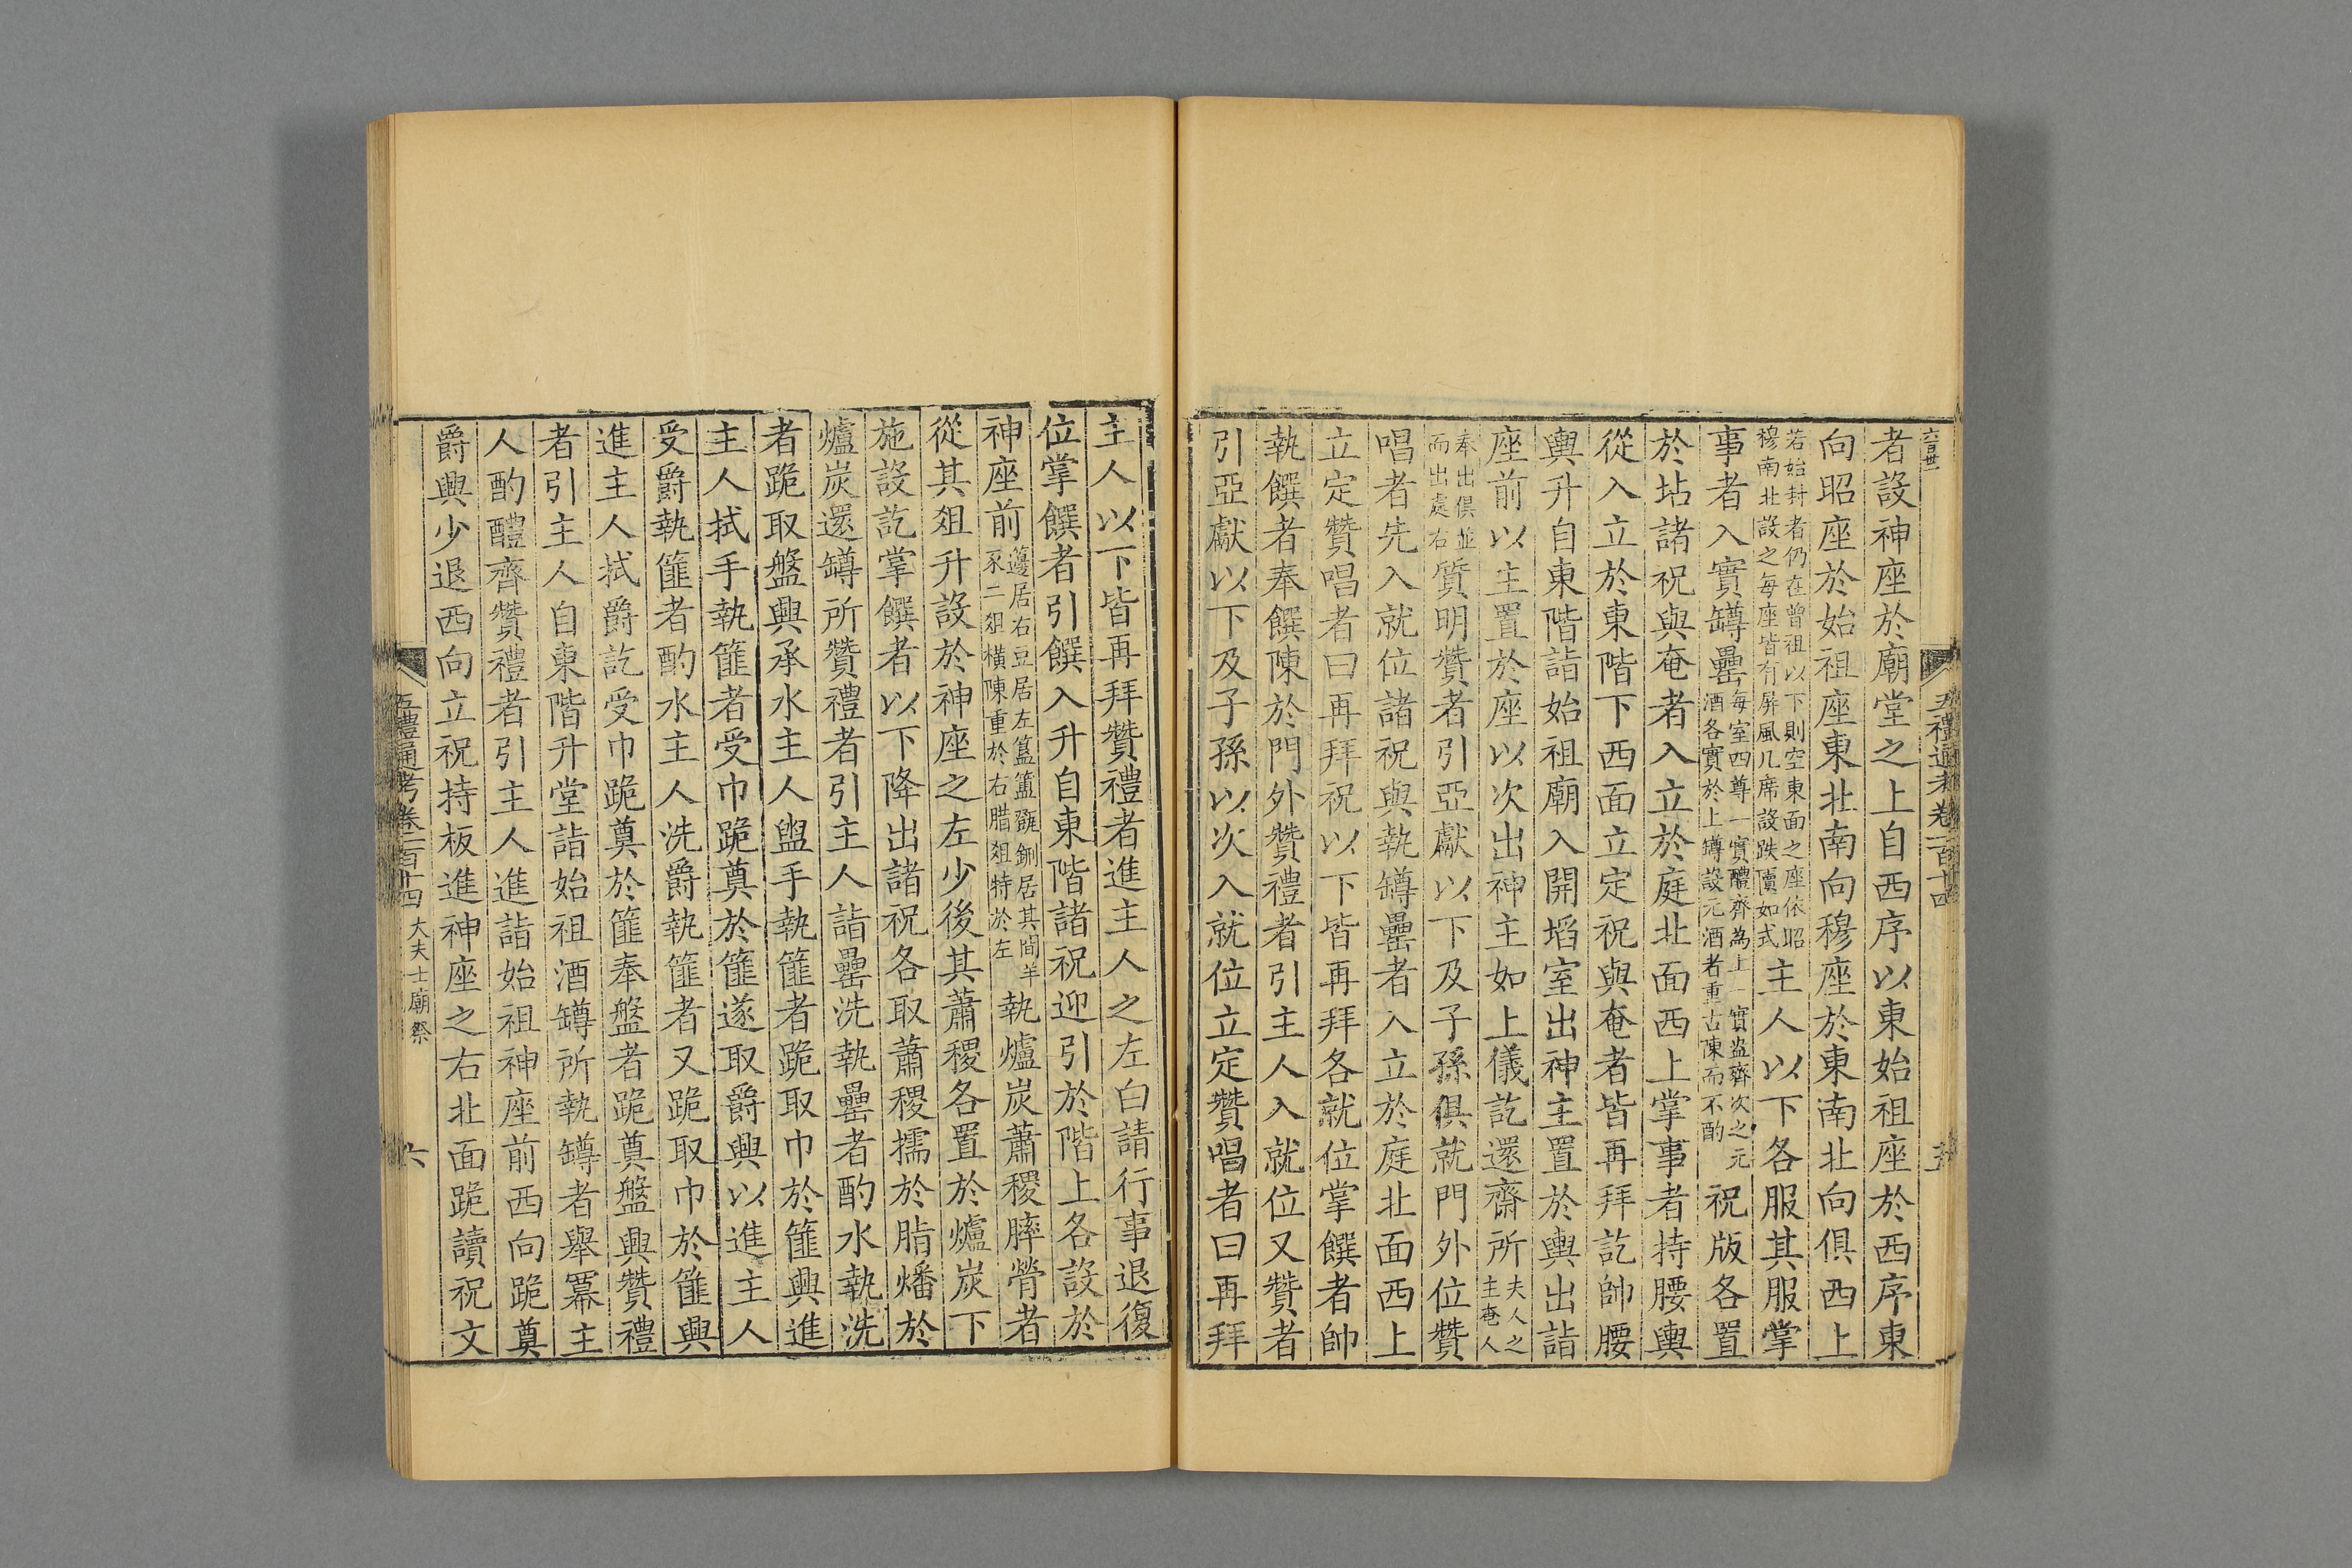 五禮通考卷一百十四
者設神座於廟堂之上自西序以東始祖座於西序東
向昭座於始祖座東北南向穆座於東南北向俱西上
若始封者仍在曾祖以下則空東面之座依昭
穆南北設之每座皆有屏風几席設跌匵如式
主人以下各服其服掌
事者入實罇罍
每室四尊一實醴齊為上一實盎齊次之元
酒各實於上罇設元酒者重古陳而不酌
祝版各置
於坫諸祝與奄者入立於庭北面西上掌事者持腰輿
從入立於東階下西面立定祝與奄者皆再拜訖帥腰
輿升自東階詣始祖廟入開埳室出神主置於輿出詣
座前以主置於座以次出神主如上儀訖還齋所
夫人之
主奄人
奉出俱並
而出處右
質明贊者引亞獻以下及子孫俱就門外位贊
唱者先入就位諸祝與執罇罍者入立於庭北面西上
立定贊唱者曰再拜祝以下皆再拜各就位掌饌者帥
執饌者奉饌陳於門外贊禮者引主人入就位又贊者
引亞獻以下及子孫以次入就位立定贊唱者曰再拜
主人以下皆再拜贊禮者進主人之左白請行事退復
位掌饌者引饌入升自東階諸祝迎引於階上各設於
神座前
籩居右豆居左簋簠㽅鉶居其間羊
豕二俎橫陳重於右腊俎特於左
執爐炭蕭稷膟膋者
從其俎升設於神座之左少後其蕭稷各置於爐炭下
施設訖掌饌者以下降出諸祝各取蕭稷擩於脂燔於
爐炭還罇所贊禮者引主人詣罍洗執罍者酌水執洗
者跪取盤興承水主人盥手執篚者跪取巾於篚興進
主人拭手執篚者受巾跪奠於篚遂取爵興以進主人
受爵執篚者酌水主人洗爵執篚者又跪取巾於篚興
進主人拭爵訖受巾跪奠於篚奉盤者跪奠盤興贊禮
者引主人自東階升堂詣始祖酒罇所執罇者舉冪主
人酌醴齊贊禮者引主人進詣始祖神座前西向跪奠
爵興少退西向立祝持板進神座之右北面跪讀祝文
五禮通考卷一百十四 大夫士廟祭 六